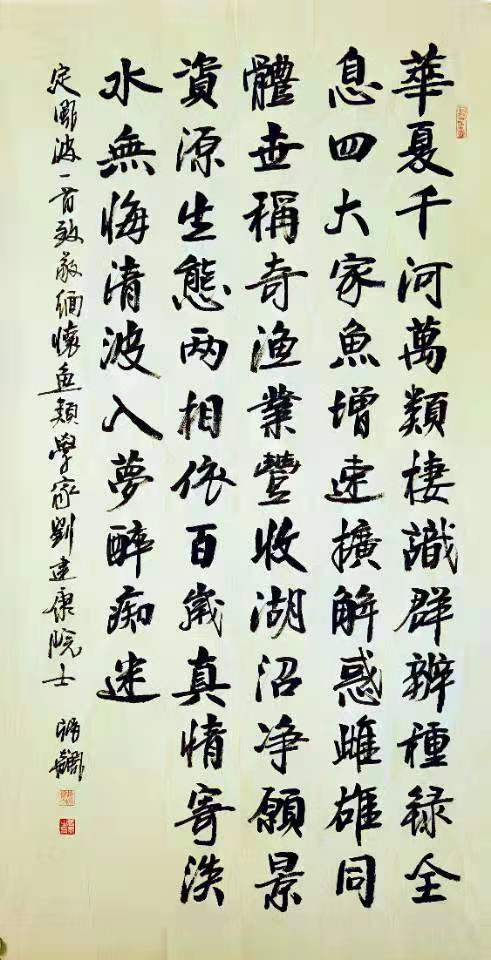 華夏千河萬類棲識群辨種錄全
息四大家魚增速擴解惑雌雄同
體世稱奇漁業豐收湖沼净願景
資源生態两相依百歲真情寄淡
水無悔清波入夢醉痴迷
定風波一首致敬緬懷魚類學家劉建康院士